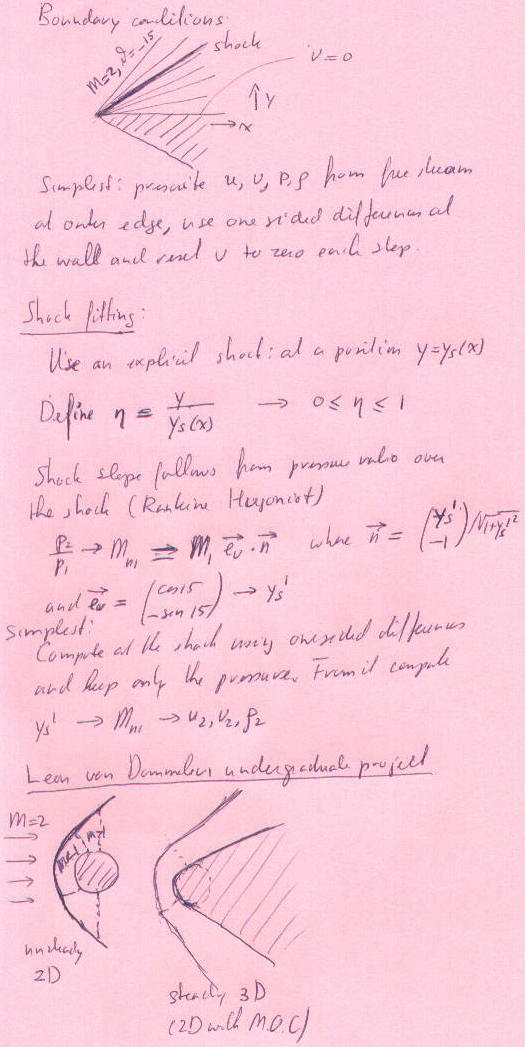 Boundary conditions
M=2, ϑ=-15
shock
v=0
Y
x
Simplest: prescribe u, v, p, ρ from free stream
at outer edge, use one sided differences at
the wall and reset v to zero each step.
Shock fitting:
Use an explicit shock: at a position y=ys(x)
Define η ≡ y / ys(x) → 0 ≤ η ≤ 1
Shock slope follows from pressure ratio over
the shock (Rankine Hugoniot)
p2/p1 → Mn1 = M1 e⃗v · n⃗ where n⃗ = (ys' -1) / √1+ys'²
and e⃗v = (cos 15 -sin 15) → ys'
Simplest:
Compute at the shock using onesided differences
and keep only the pressure. From it compute
ys' → Mn1 → u2, v2, ρ2
Leon van Dommelen undergraduate project
M=2
unsteady
2D
steady 3D
(2D with M.O.C)